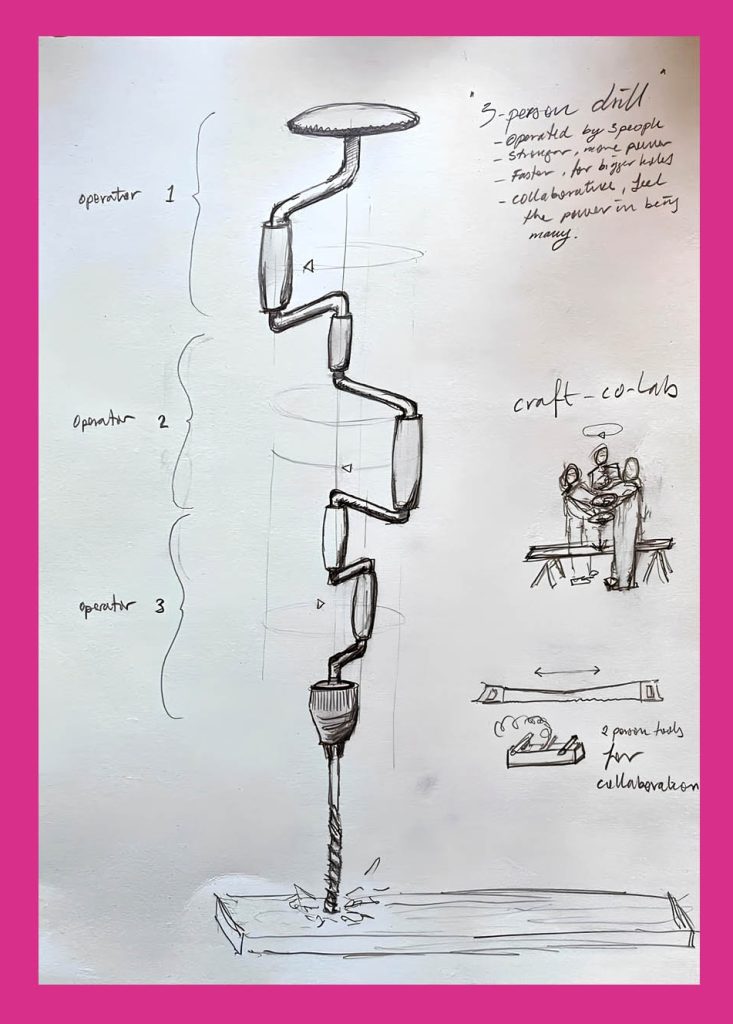 "3-person drill"
- Operated by 3 people
- Stronger, more power
- Faster, for bigger holes
- collaborative, feel
the power in being
many.
operator 1
Operator 2
operator 3
craft-co-lab
2 person tools
for
collaboration